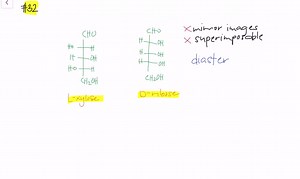 #32
CHO
HO H
H OH
HO H
CH₂OH
L-xylose
CHO
H OH
H OH
H OH
CH₂OH
D-ribose
× mirror images
× superimposable
diaster